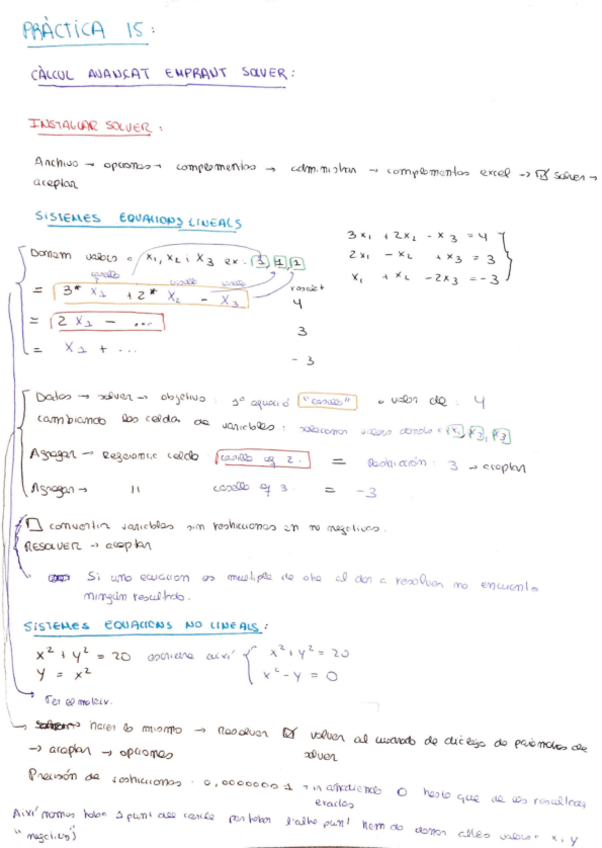 PRÀCTICA 15:
CÀLCUL AVANÇAT EMPRANT SOLVER:
INSTAL·LAR SOLVER:
Archivo → opciones → complementos → administrar → complementos excel → ☑ solver →
aceptar
SISTEMES EQUACIONS LINEALS
3x₁ + 2x₂ - x₃ = 4
2x₁ - x₂ + x₃ = 3
x₁ + x₂ - 2x₃ = -3
Donam valors a x₁, x₂ i x₃ ex. 1, 1, 1
casella casella casella
= 3* x₁ + 2* x₂ - x₃
4
= 2 x₁ - ...
3
= x₁ + ...
-3
Datos → solver → objetivo: 1ª equació "casella" a valor de: 4
cambiando las celdas de variables: seleccionar valors donats a x₁, x₂, x₃
Agregar → Referencia celda: casella eq 2. = Restricción: 3 → aceptar
Agregar → " casella eq 3 = -3
☐ convertir variables sin restricciones en no negativas.
RESOLVER → aceptar
Si una ecuación es multiple de otra al dar a resolver no encuentra
ningún resultado.
SISTEMES EQUACIONS NO LINEALS:
x² + y² = 20 escriure així { x² + y² = 20
y = x² x² - y = 0
Fer el mateix.
hacer lo mismo → Resolver ☑ volver al cuadro de diálogo de parámetros de
solver
→ aceptar → opciones
Precisión de restricciones: 0,0000001 → añadiendo 0 hasta que de los resultados
exactos
Així només troba 1 punt per trobar l'altre punt hem de donar altres valors a x, y
"negatius"